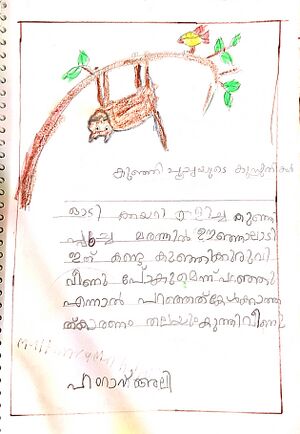 കുഞ്ഞി പൂച്ചയുടെ കുസൃതികൾ
ഓടി കയറി കളിച്ച കുഞ്ഞി
പൂച്ച മരത്തിൽ ഊഞ്ഞാലാടി
ഇത് കണ്ടു കുഞ്ഞിക്കുരുവി
വീണു പോകുമെന്ന് പറഞ്ഞു
എന്നാൽ പറഞ്ഞത്കേൾക്കാത്ത
ത്കാരണം തലയുംകുത്തിവീണു
അലി